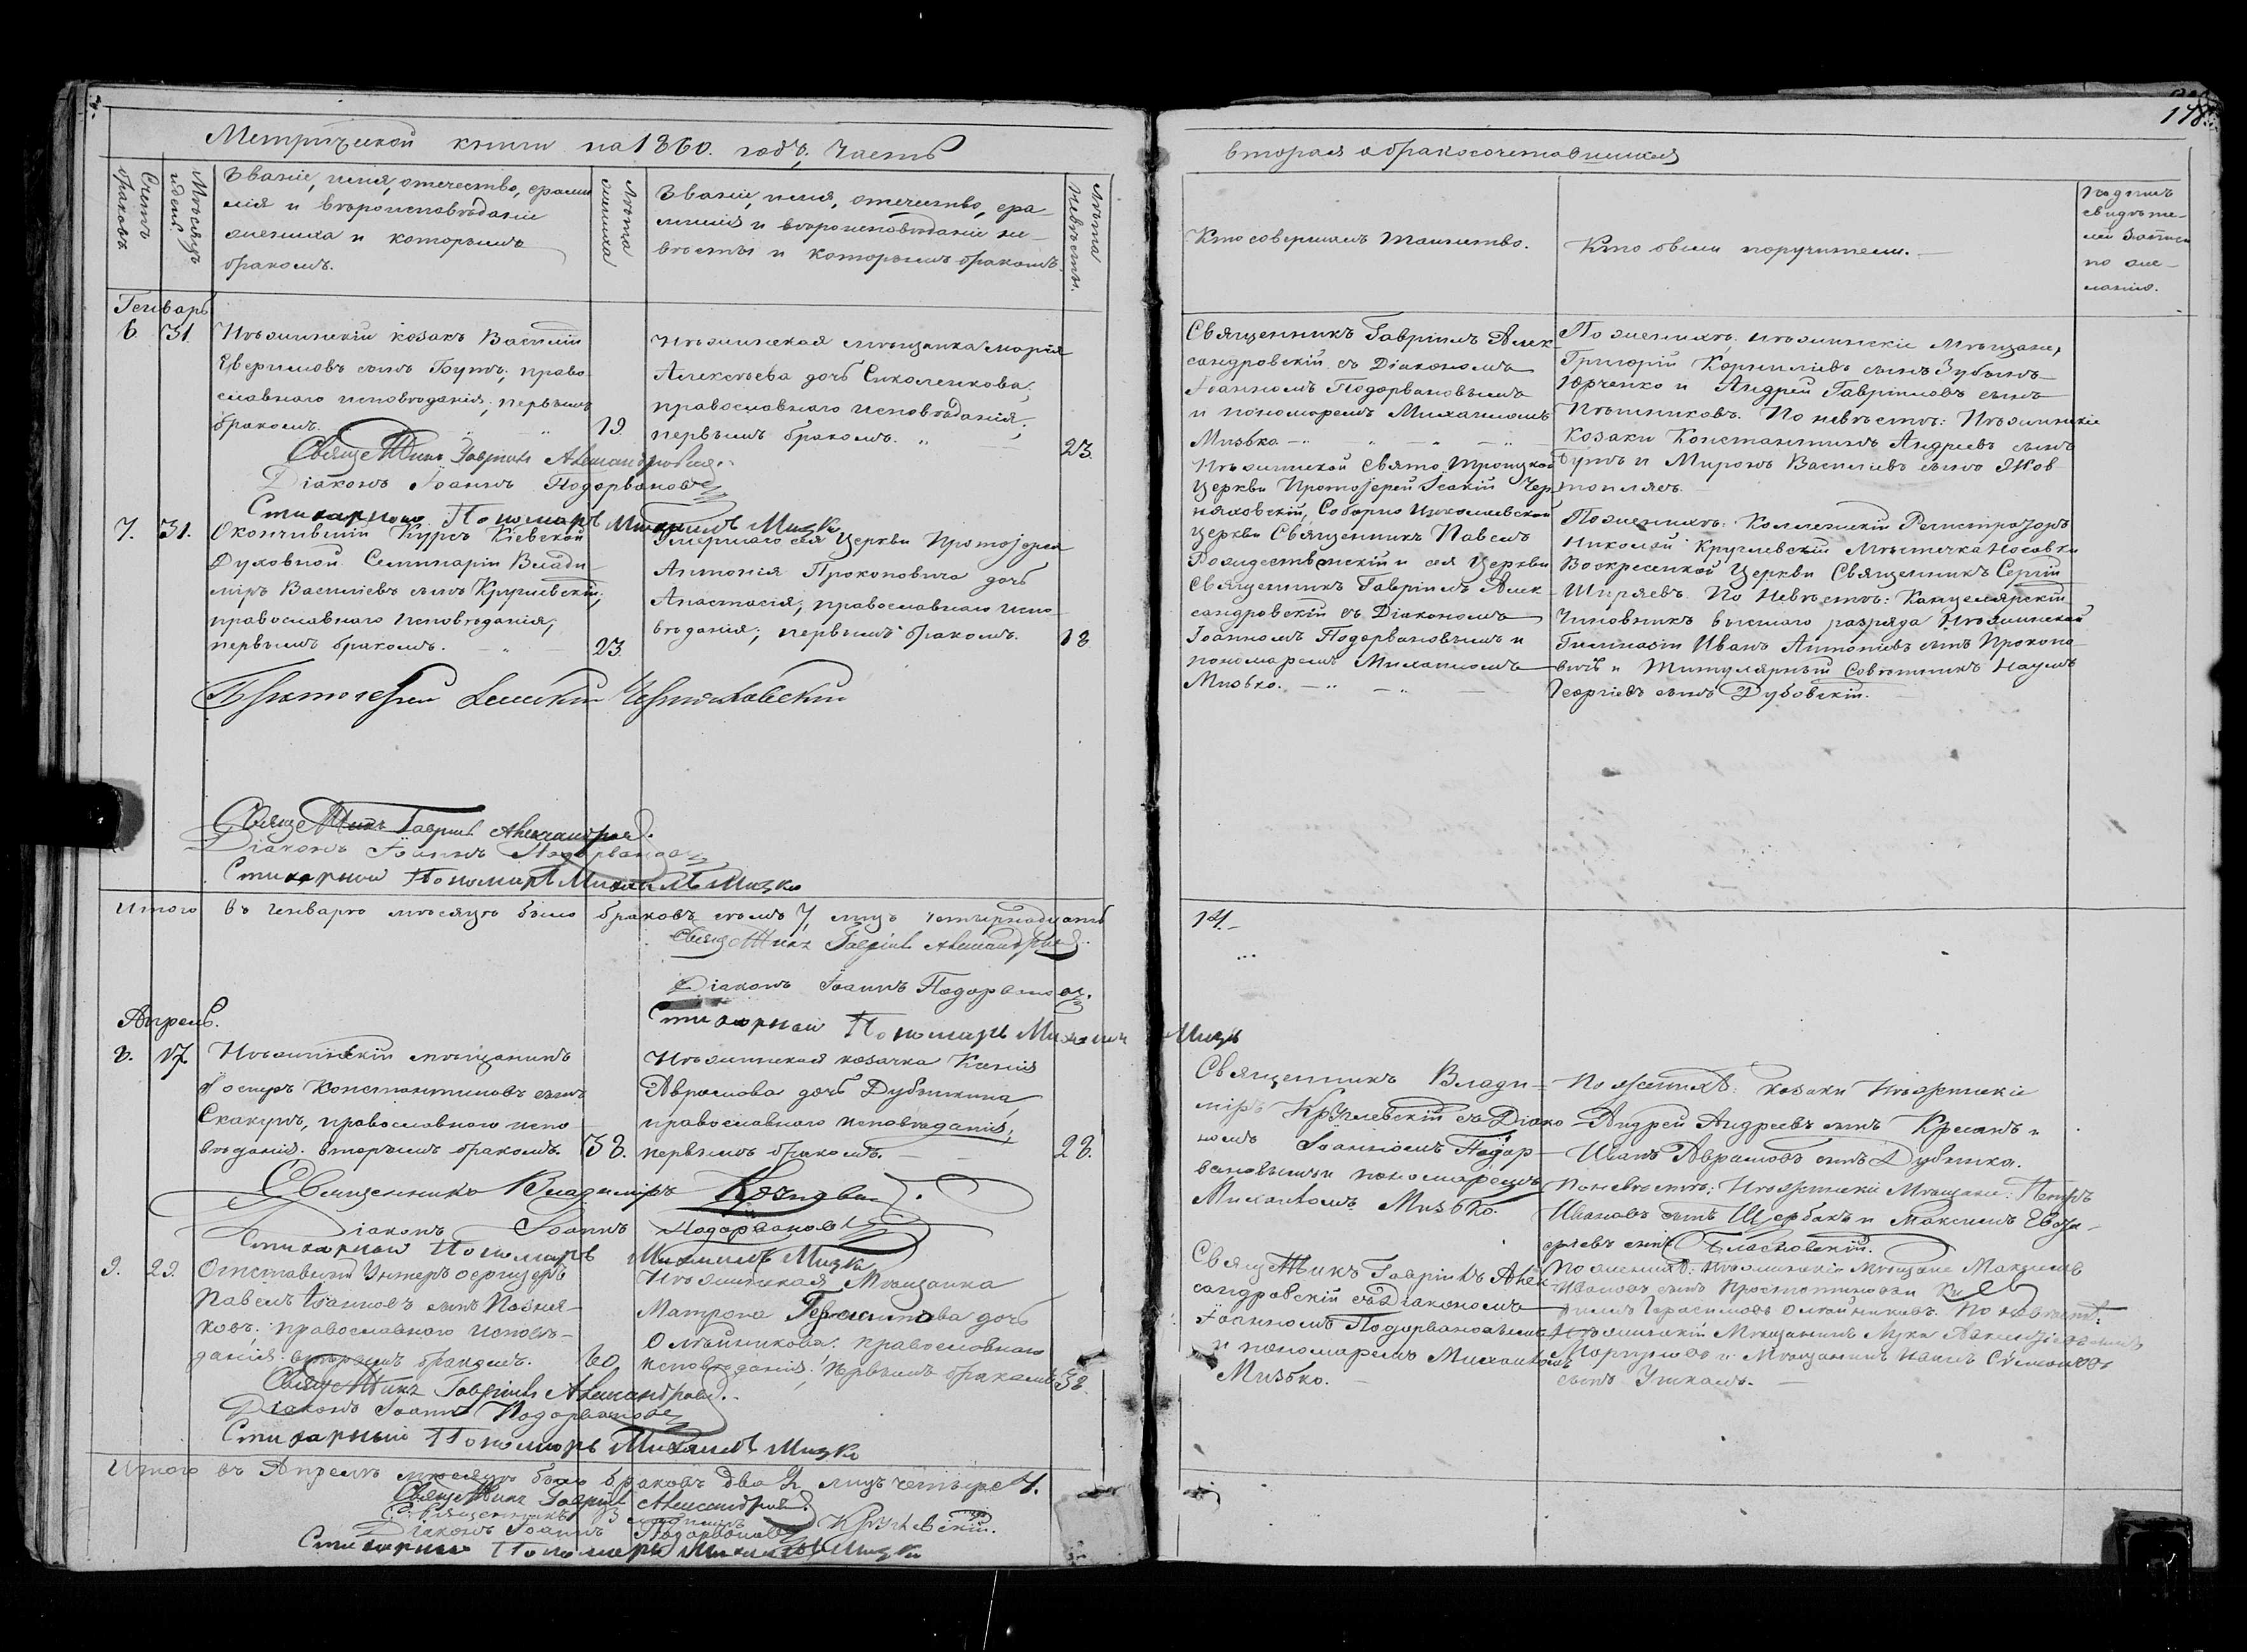 Метрической книги на 1860. годъ, Часть
вторая о бракосочетавшихся
178
Счетъ браковъ
Мѣсяцъ и день
Званіе, имя, отечество, фами-
лія и вѣроисповѣданіе
жениха и которымъ
бракомъ.
Лѣта жениха
Званіе, имя, отечество, фа-
милія и вѣроисповѣданіе не-
вѣсты и которымъ бракомъ.
Лѣта невѣсты.
Кто совершалъ таинство.
Кто были поручители.
Подпись
свидѣте-
лей записи
по же-
ланію.
Генварь
6. 31.
Нѣжинскій козакъ Василій
сынъ Бутъ, право-
славнаго исповѣданія, первымъ
бракомъ.
19.
Нѣжинская мѣщанка Марія
Алексѣева дочь Сиколенкова,
православнаго исповѣданія;
первымъ бракомъ.
23.
Священникъ Гавріилъ Алек-
сандровскій съ Діакономъ
Іоанномъ Подорвановымъ
и пономаремъ Михаиломъ
Мизько
По женихѣ: нѣжинскіе мѣщане,
Григорій Корниліевъ сынъ
Юрченко и Андрей Гавріиловъ сынъ
По невѣстѣ: Нѣжинскіе
Козаки Константинъ Андреевъ сынъ
Бутъ и Миронъ Василіевъ сынъ
Священникъ Гавріилъ Александровскій.
Діаконъ Іоаннъ Подорвановъ
Стихарный Пономарь Михаилъ Мизко
7. 31.
Окончившій Курсъ Кіевской
Духовной Семинаріи Влади-
міръ Василіевъ сынъ Круглевскій,
православнаго исповѣданія,
первымъ бракомъ.
23.
Умершаго сея Церкви Протоіерея
Антонія Прокоповича дочь
Анастасія, православнаго испо-
вѣданія; первымъ бракомъ.
18
Нѣжинской Свято Троицкой
Церкви Протоіерей Іоакій Чер-
няховскій, Соборно Николаевской
Церкви Священникъ Павелъ
Рождественскій и сея Церкви
Священникъ Гавріилъ Алек-
сандровскій съ Діакономъ
Іоанномъ Подорвановымъ и
пономаремъ Михаиломъ
Мизько.
По женихѣ: Коллежскій Регистраторъ
Николай Круглевскій Мѣстечка Носовки
Воскресенской Церкви Священникъ Сергій
Ширяевъ. По Невѣстѣ: Канцелярскій
Чиновникъ высшаго разряда Нѣжинской
Гимназіи Иванъ Антоніевъ сынъ Прокопо-
вичъ и Титулярный Совѣтникъ Наумъ
Георгіевъ сынъ Дубовскій.
Протоіерей Черняховскій
Священникъ Гавріилъ Александровскій.
Діаконъ Іоаннъ Подорвановъ
Стихарный Пономарь Михаилъ Мизко
Итого въ Генварѣ мѣсяцѣ было браковъ семь 7, лицъ четырнадцать
14.
Священникъ Гавріилъ Александровскій.
Діаконъ Іоаннъ Подорвановъ.
Стихарный Пономарь Михаилъ Мизко
Апрель.
8. 17.
Нѣжинскій мѣщанинъ
Константиновъ сынъ
Скакунъ, православнаго испо-
вѣданія. вторымъ бракомъ.
38.
Нѣжинская козачка Ксенія
Аврамова дочь Дубынкина,
православнаго исповѣданія,
первымъ бракомъ.
28.
Священникъ Влади-
міръ Круглевскій съ Діако-
номъ Іоанномъ Подор-
вановымъ и пономаремъ
Михаиломъ Мизько.
По женихѣ: козаки Нѣжинскіе
Андрей Андреевъ сынъ и
Иванъ Аврамовъ сынъ Дубынка.
По невѣстѣ: Нѣжинскіе Мѣщане: Петръ
Ивановъ сынъ Щербакъ и Максимъ
сынъ
Священникъ Владиміръ Круглевскій.
Діаконъ Іоаннъ Подорвановъ
Стихарный Пономарь Михаилъ Мизко
9. 29.
Отставный Унтеръ офицеръ
Павелъ Іоанновъ сынъ
православнаго исповѣ-
данія: вторымъ бракомъ.
60
Нѣжинская Мѣщанка
Матрона Герасимова дочь
Олѣйникова: православнаго
исповѣданія, первымъ бракомъ
38.
Священникъ Гавріилъ Алек-
сандровскій съ Діакономъ
Іоанномъ Подорвановымъ
и пономаремъ Михаиломъ
Мизько.
По женихѣ: Нѣжинскіе Мѣщане Максимъ
Ивановъ сынъ
Герасимовъ Олѣйниковъ. По невѣстѣ:
Нѣжинскій Мѣщанинъ Лука
и Мѣщанинъ
сынъ
Священникъ Гавріилъ Александровскій.
Діаконъ Іоаннъ Подорвановъ
Стихарный Пономарь Михаилъ Мизко
Итого въ Апрелѣ мѣсяцѣ было браковъ два 2, лицъ четыре 4.
Священникъ Гавріилъ Александровскій
Священникъ Владиміръ Круглевскій.
Діаконъ Іоаннъ Подорвановъ
Стихарный Пономарь Михаилъ Мизко